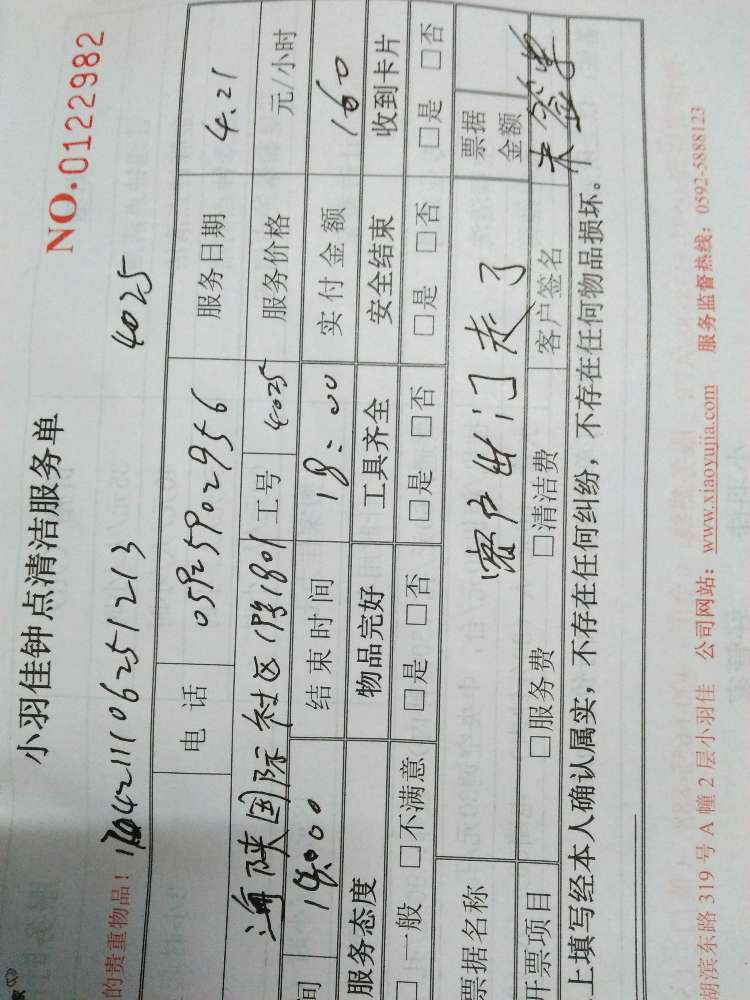 小羽佳钟点清洁服务单
NO.0122982
的贵重物品! 4025
电话 05925902956 服务日期 4.21
海陕国际社区 1801 工号 4025 服务价格 元/小时
间 14:00 结束时间 18:00 实付金额 160
服务态度 物品完好 工具齐全 安全结束 收到卡片
□一般 □不满意 □是 □否 □是 □否 □是 □否 □是 □否
票据名称 客户出门走了 票据金额
开票项目 □服务费 □清洁费 客户签名 未签单
上填写经本人确认属实,不存在任何纠纷,不存在任何物品损坏。
湖滨东路 319 号 A 幢 2 层小羽佳 公司网站:www.xiaoyujia.com 服务监督热线:0592-5888123